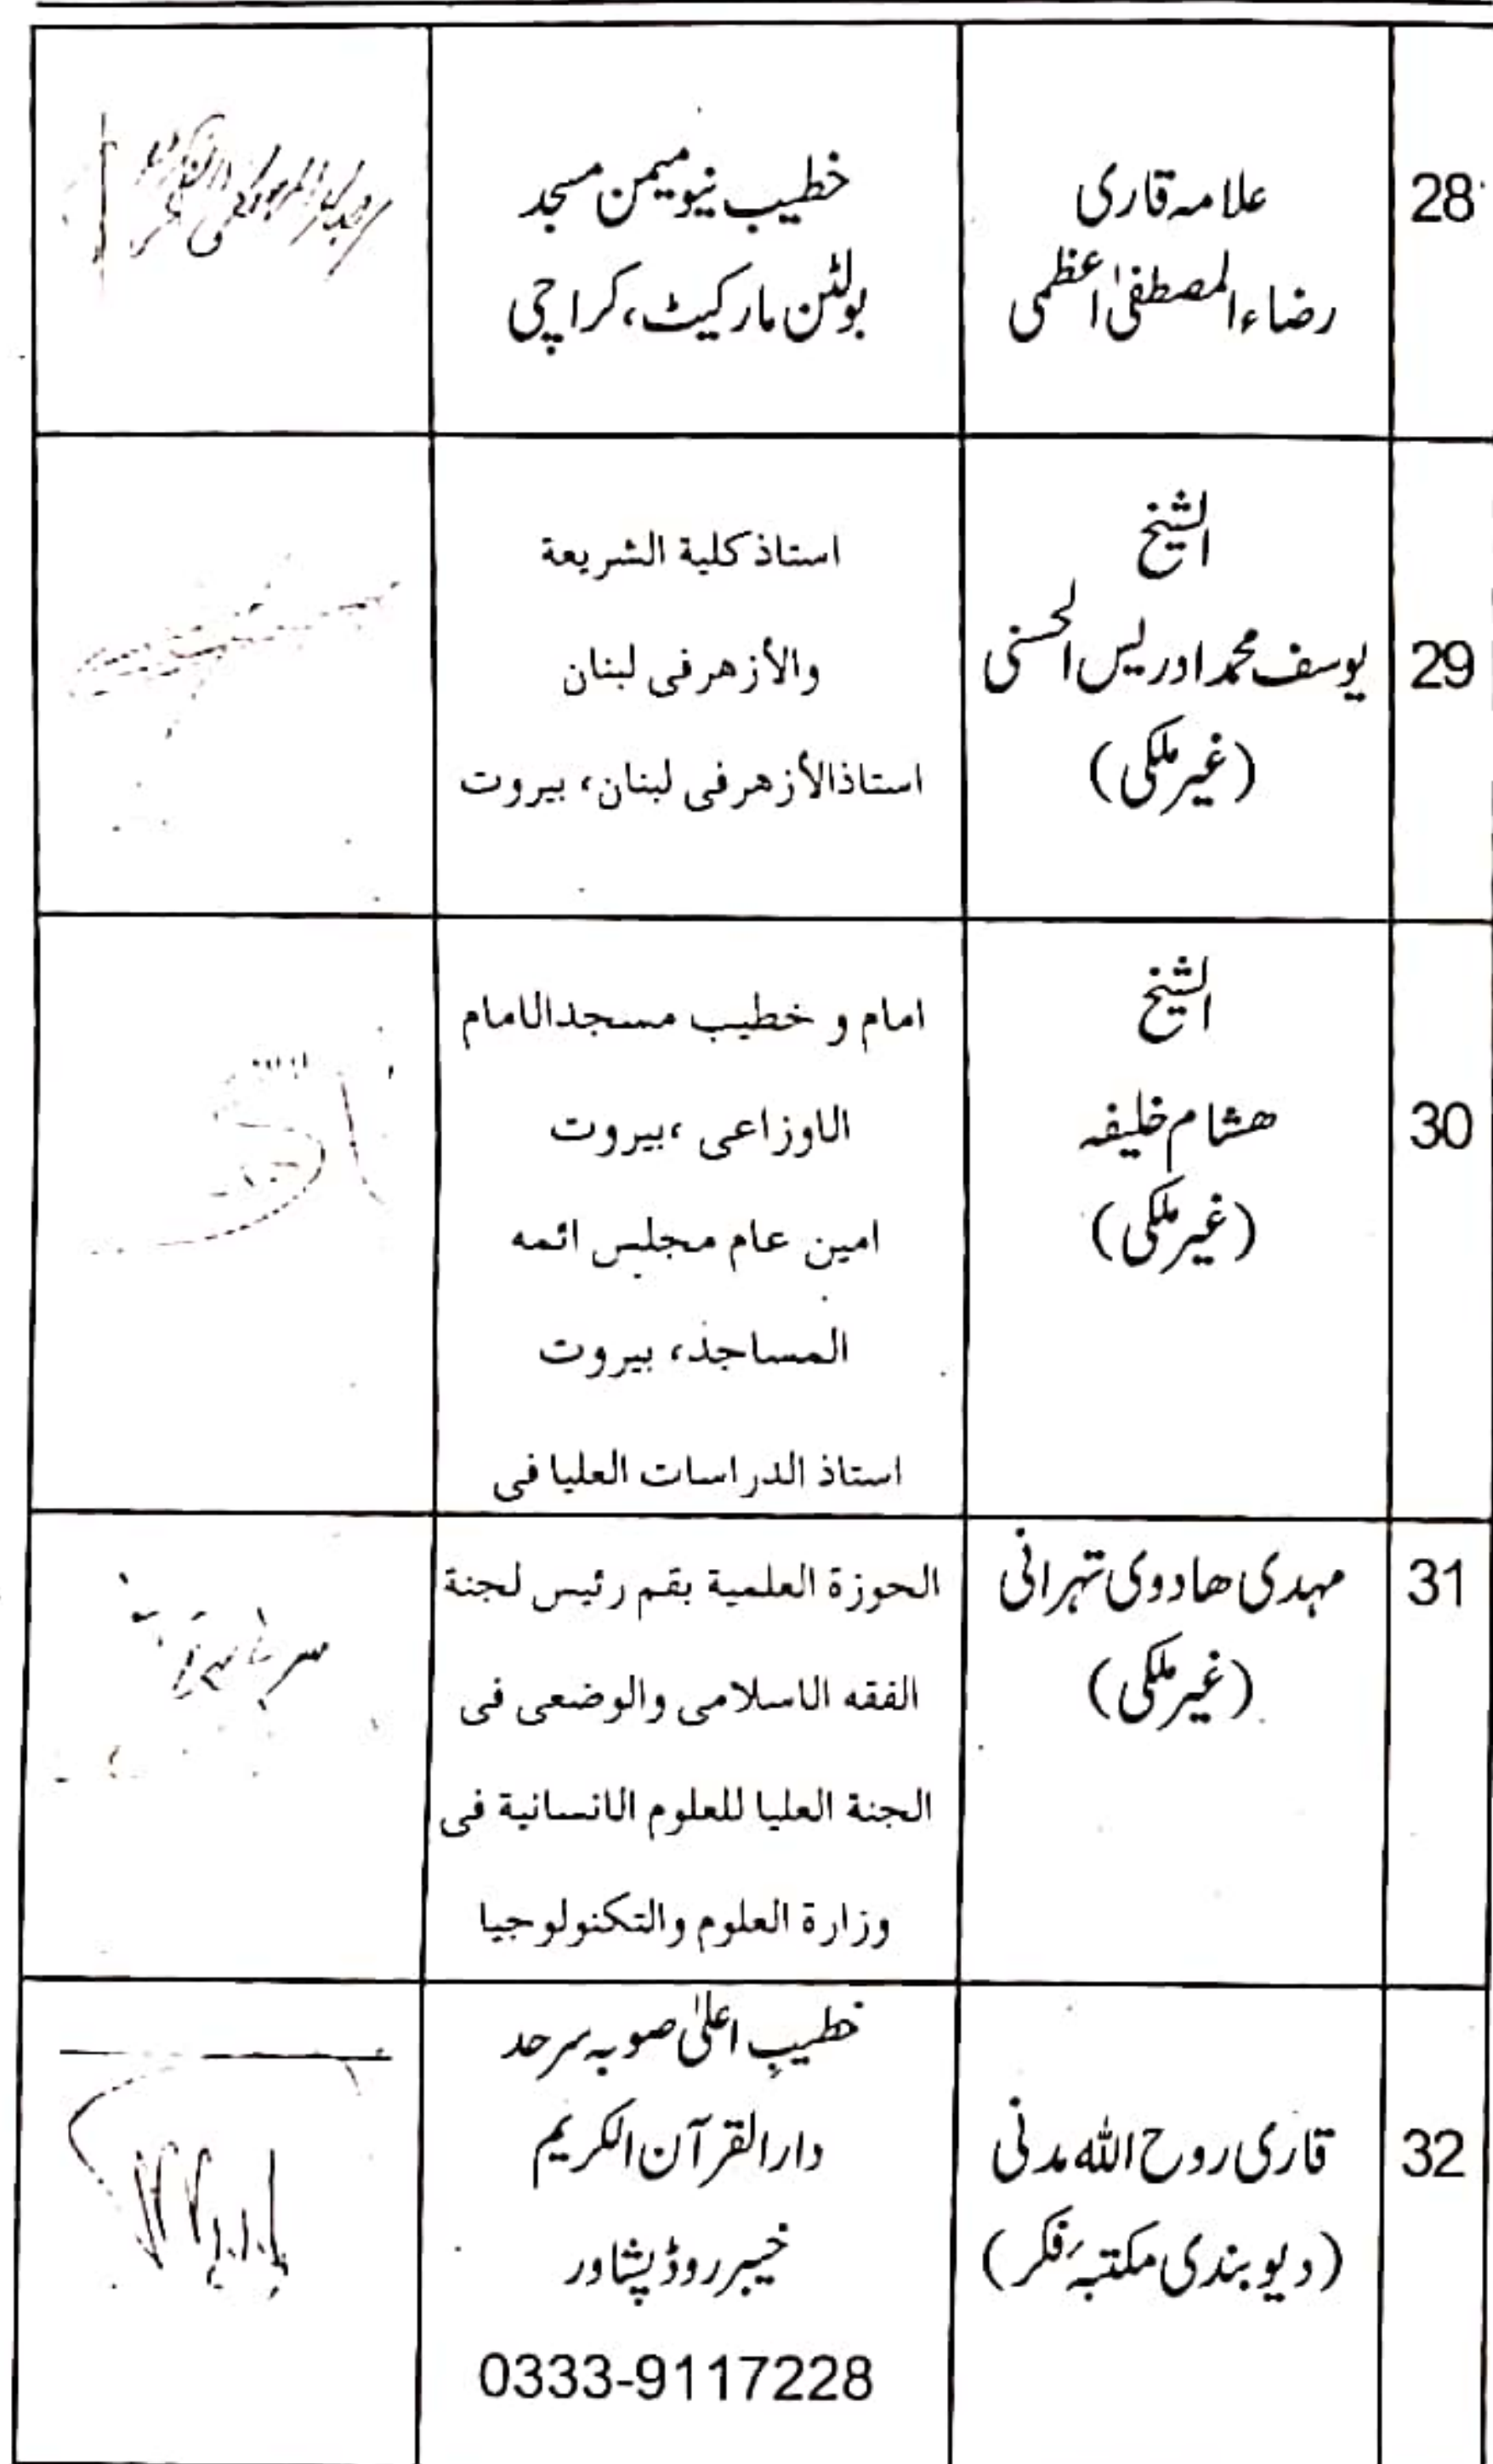 28
علامہ قاری
رضاء المصطفیٰ اعظمی
خطیب نیو میمن مسجد
بولٹن مارکیٹ، کراچی
29
الشیخ
یوسف محمد ادریس الحسنی
(غیر ملکی)
استاذ كلية الشريعة
والأزهر فی لبنان
استاذ الأزهر فی لبنان، بیروت
30
الشیخ
هشام خلیفہ
(غیر ملکی)
امام و خطیب مسجد الامام
الاوزاعی ،بیروت
امین عام مجلس ائمه
المساجذ، بیروت
استاذ الدراسات العلیا فی
31
مہدی هادوی تہرانی
(غیر ملکی)
الحوزة العلمیة بقم رئیس لجنة
الفقه الاسلامی والوضعی فی
الجنة العلیا للعلوم الانسانیة فی
وزارة العلوم والتکنولوجیا
32
قاری روح اللہ مدنی
(دیوبندی مکتبۂ فکر)
خطیبِ اعلیٰ صوبہ سرحد
دارالقرآن الکریم
خیبر روڈ پشاور
0333-9117228